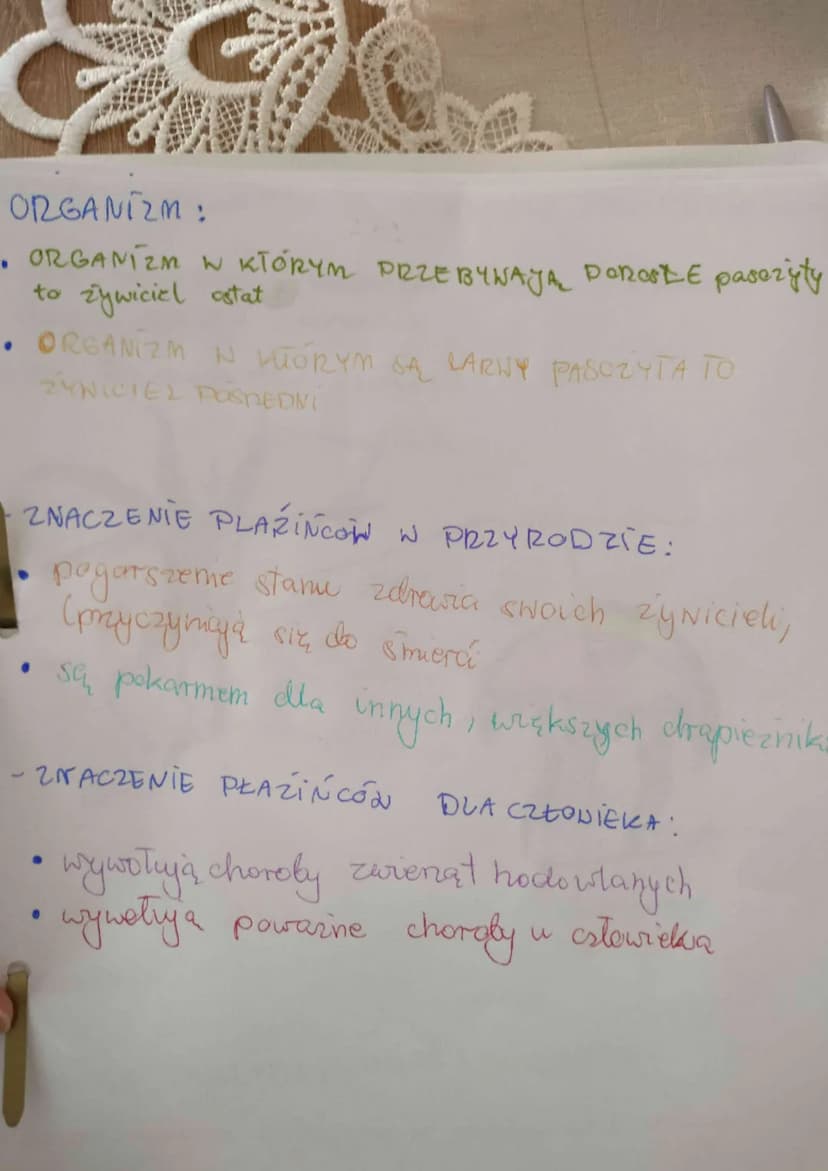 ORGANIZM:
• ORGANIZM W KTÓRYM PRZEBYWAJĄ DOROSŁE pasożyty
to żywiciel ostat
• ORGANIZM W KTÓRYM SĄ LARWY PASOŻYTA TO
ŻYWICIEL POŚREDNI
- ZNACZENIE PŁAZIŃCÓW W PRZYRODZIE:
• pogorszenie stanu zdrowia swoich żywicieli,
(przyczyniają się do śmierci
• są pokarmem dla innych, większych drapieżnik
- ZNACZENIE PŁAZIŃCÓW DLA CZŁOWIEKA:
• wywołują choroby zwierząt hodowlanych
• wywołują poważne choroby u człowieka